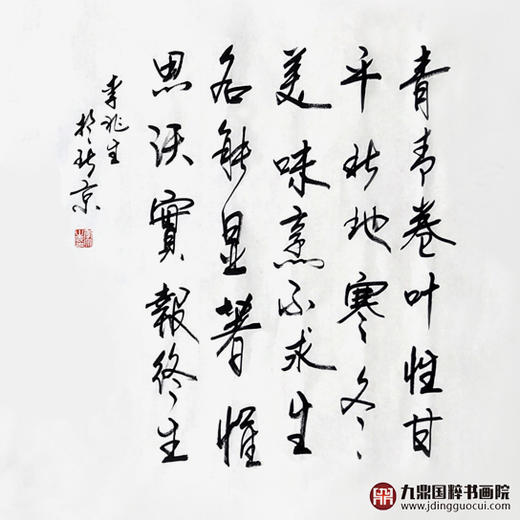 青青卷叶性甘
平北地寒冬
美味烹不求生
名能显著惟
思沃實報终生
李兆生
於北京
九鼎国粹书画院
www.jdingguocui.com